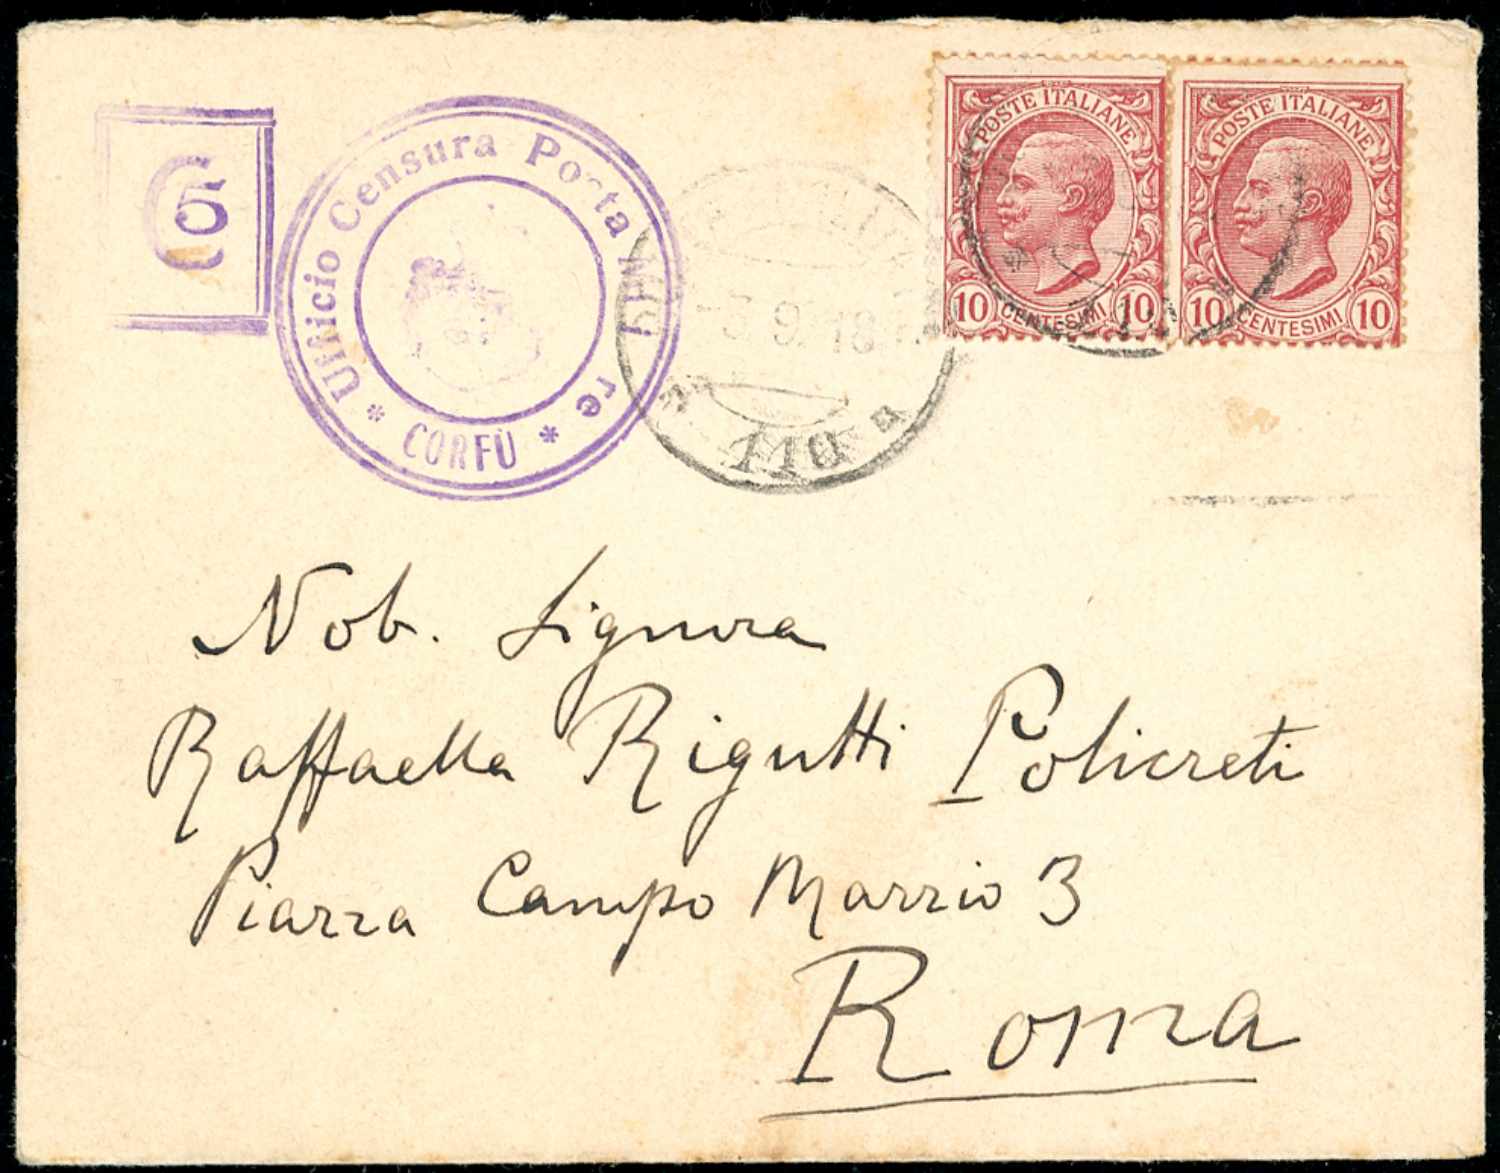 C5
Ufficio Censura Posta re
* CORFÙ *
-5.9.18
110
POSTE ITALIANE
10 CENTESIMI 10
POSTE ITALIANE
10 CENTESIMI 10
Nob. Signora
Raffaella Rigutti Policreti
Piazza Campo Marzio 3
Roma